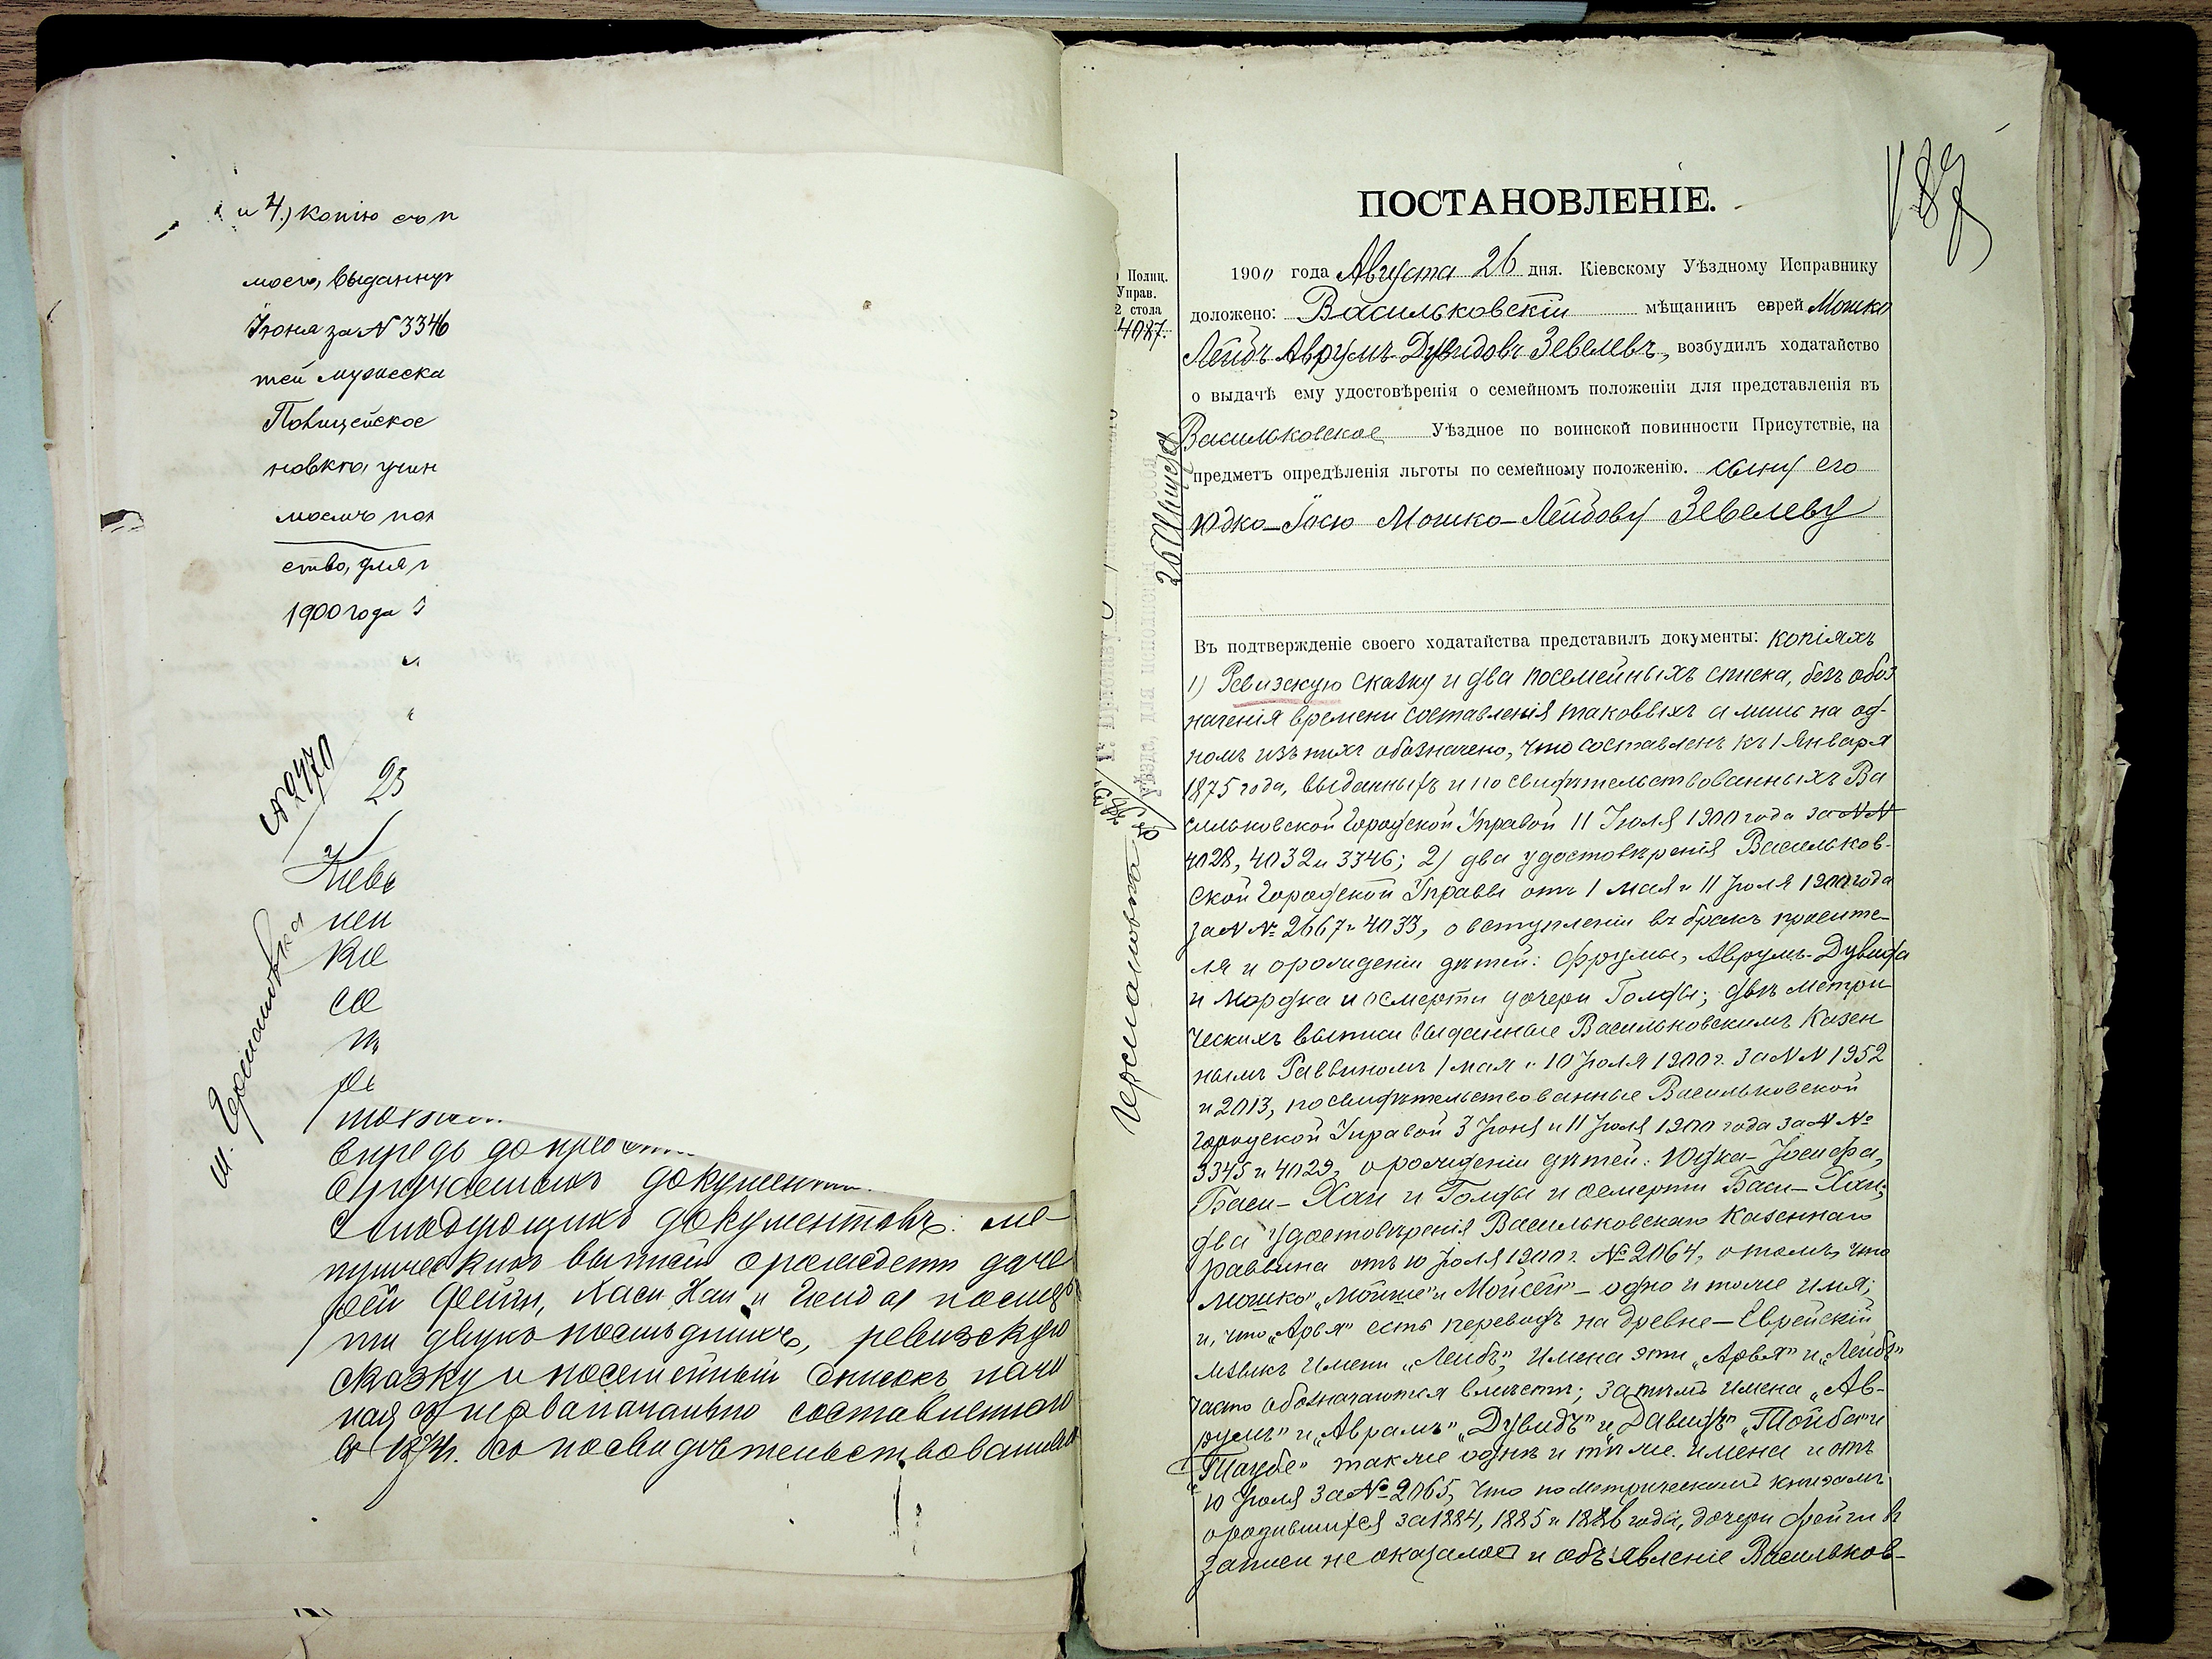 и 4.) копію съ п
моего, выданну
Іюня за N 3346
тей мужеска
Полицейское
новкѣ, учин
моемъ пол
ство, для п
1900 года
N 2470
23
Кіевс
м. Германовка
мою
впредь до предст
слѣдующихъ документовъ: ме-
трическихъ выписи о рожденіи доче
рей Фейги, Хаси Хаи и Гендли и смер
ти двухъ послѣднихъ, ревизскую
сказку и посемейный списокъ начи
ная съ первоначально составленнаго
въ 1874 г. со посвидѣтельствованіемъ
187
ПОСТАНОВЛЕНІЕ.
Полиц.
Управ.
2 стола
4087.
1900 года Августа 26 дня. Кіевскому Уѣздному Исправнику
доложено: Васильковскій мѣщанинъ еврей Мошко
Лейбъ Аврумъ-Дувидовъ Зевелевъ, возбудилъ ходатайство
о выдачѣ ему удостовѣренія о семейномъ положеніи для представленія въ
Васильковское Уѣздное по воинской повинности Присутствіе, на
предметъ опредѣленія льготы по семейному положенію. сыну его
Юдко-Іосю Мошко-Лейбову Зевелеву
26 Августа
Германовка
Въ подтвержденіе своего ходатайства представилъ документы: копіяхъ
1) Ревизскую сказку и два посемейныхъ списка, безъ обоз
наченія времени составленія таковыхъ а лишь на од-
номъ изъ нихъ обозначено, что составленъ къ 1 Января
1875 года, выданныхъ и посвидѣтельствованныхъ Ва
сильковской Городской Управой 11 Іюля 1900 года за N N
4028, 4032 и 3346; 2) два удостовѣренія Васильков-
ской Городской Управы отъ 1 мая и 11 Іюля 1900 года
за N № 2667 и 4033, о вступленіи въ бракъ просите-
ля и о рожденіи дѣтей: Фрумы, Аврумъ-Дувида
и Мордка и о смерти дочери Голды; двѣ метри
ческихъ выписи выданные Васильковскимъ Казен
нымъ Раввиномъ 1 мая и 10 Іюля 1900 г. за N N 1952
и 2013, посвидѣтельствованные Васильковской
Городской Управой 3 Іюня и 11 Іюля 1900 года за N №
3345 и 4029, о рожденіи дѣтей: Юдка-Іосифа,
Баси-Хаи и Голды и о смерти Баси-Хаи;
два удостовѣренія Васильковскаго Казеннаго
раввина отъ 10 Іюля 1900 г. № 2064, о томъ, что
„Мошко" „Мойше" и Мойсей" – одно и тоже имя;
и, что „Арья" есть переводъ на древне-Еврейскій
языкъ имени „Лейбъ", имена эти „Арья" и „Лейбъ"
часто обозначаются вмѣстѣ; затѣмъ имена „Ав-
румъ" и „Аврамъ" „Дувидъ" и „Давидъ" „Тойба" и
„Таубе" также однѣ и тѣ же имена и отъ
10 Іюля за № 2065, что по метрическимъ книгамъ
о родившихся за 1884, 1885 и 1886 годы, дочери Фейги въ
записи не оказалось и объявленіе Васильков-